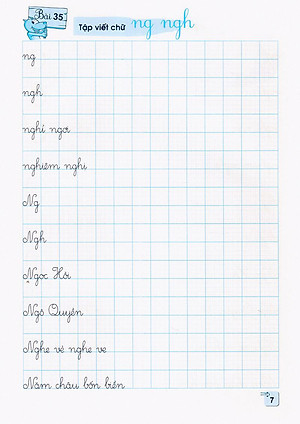 Bài 35
Tập viết chữ ng ngh
ng
ngh
nghỉ ngơi
nghiêm nghị
Ng
Ngh
Ngọc Hồi
Ngô Quyền
Nghe vẻ nghe ve
Năm châu bốn biển
7